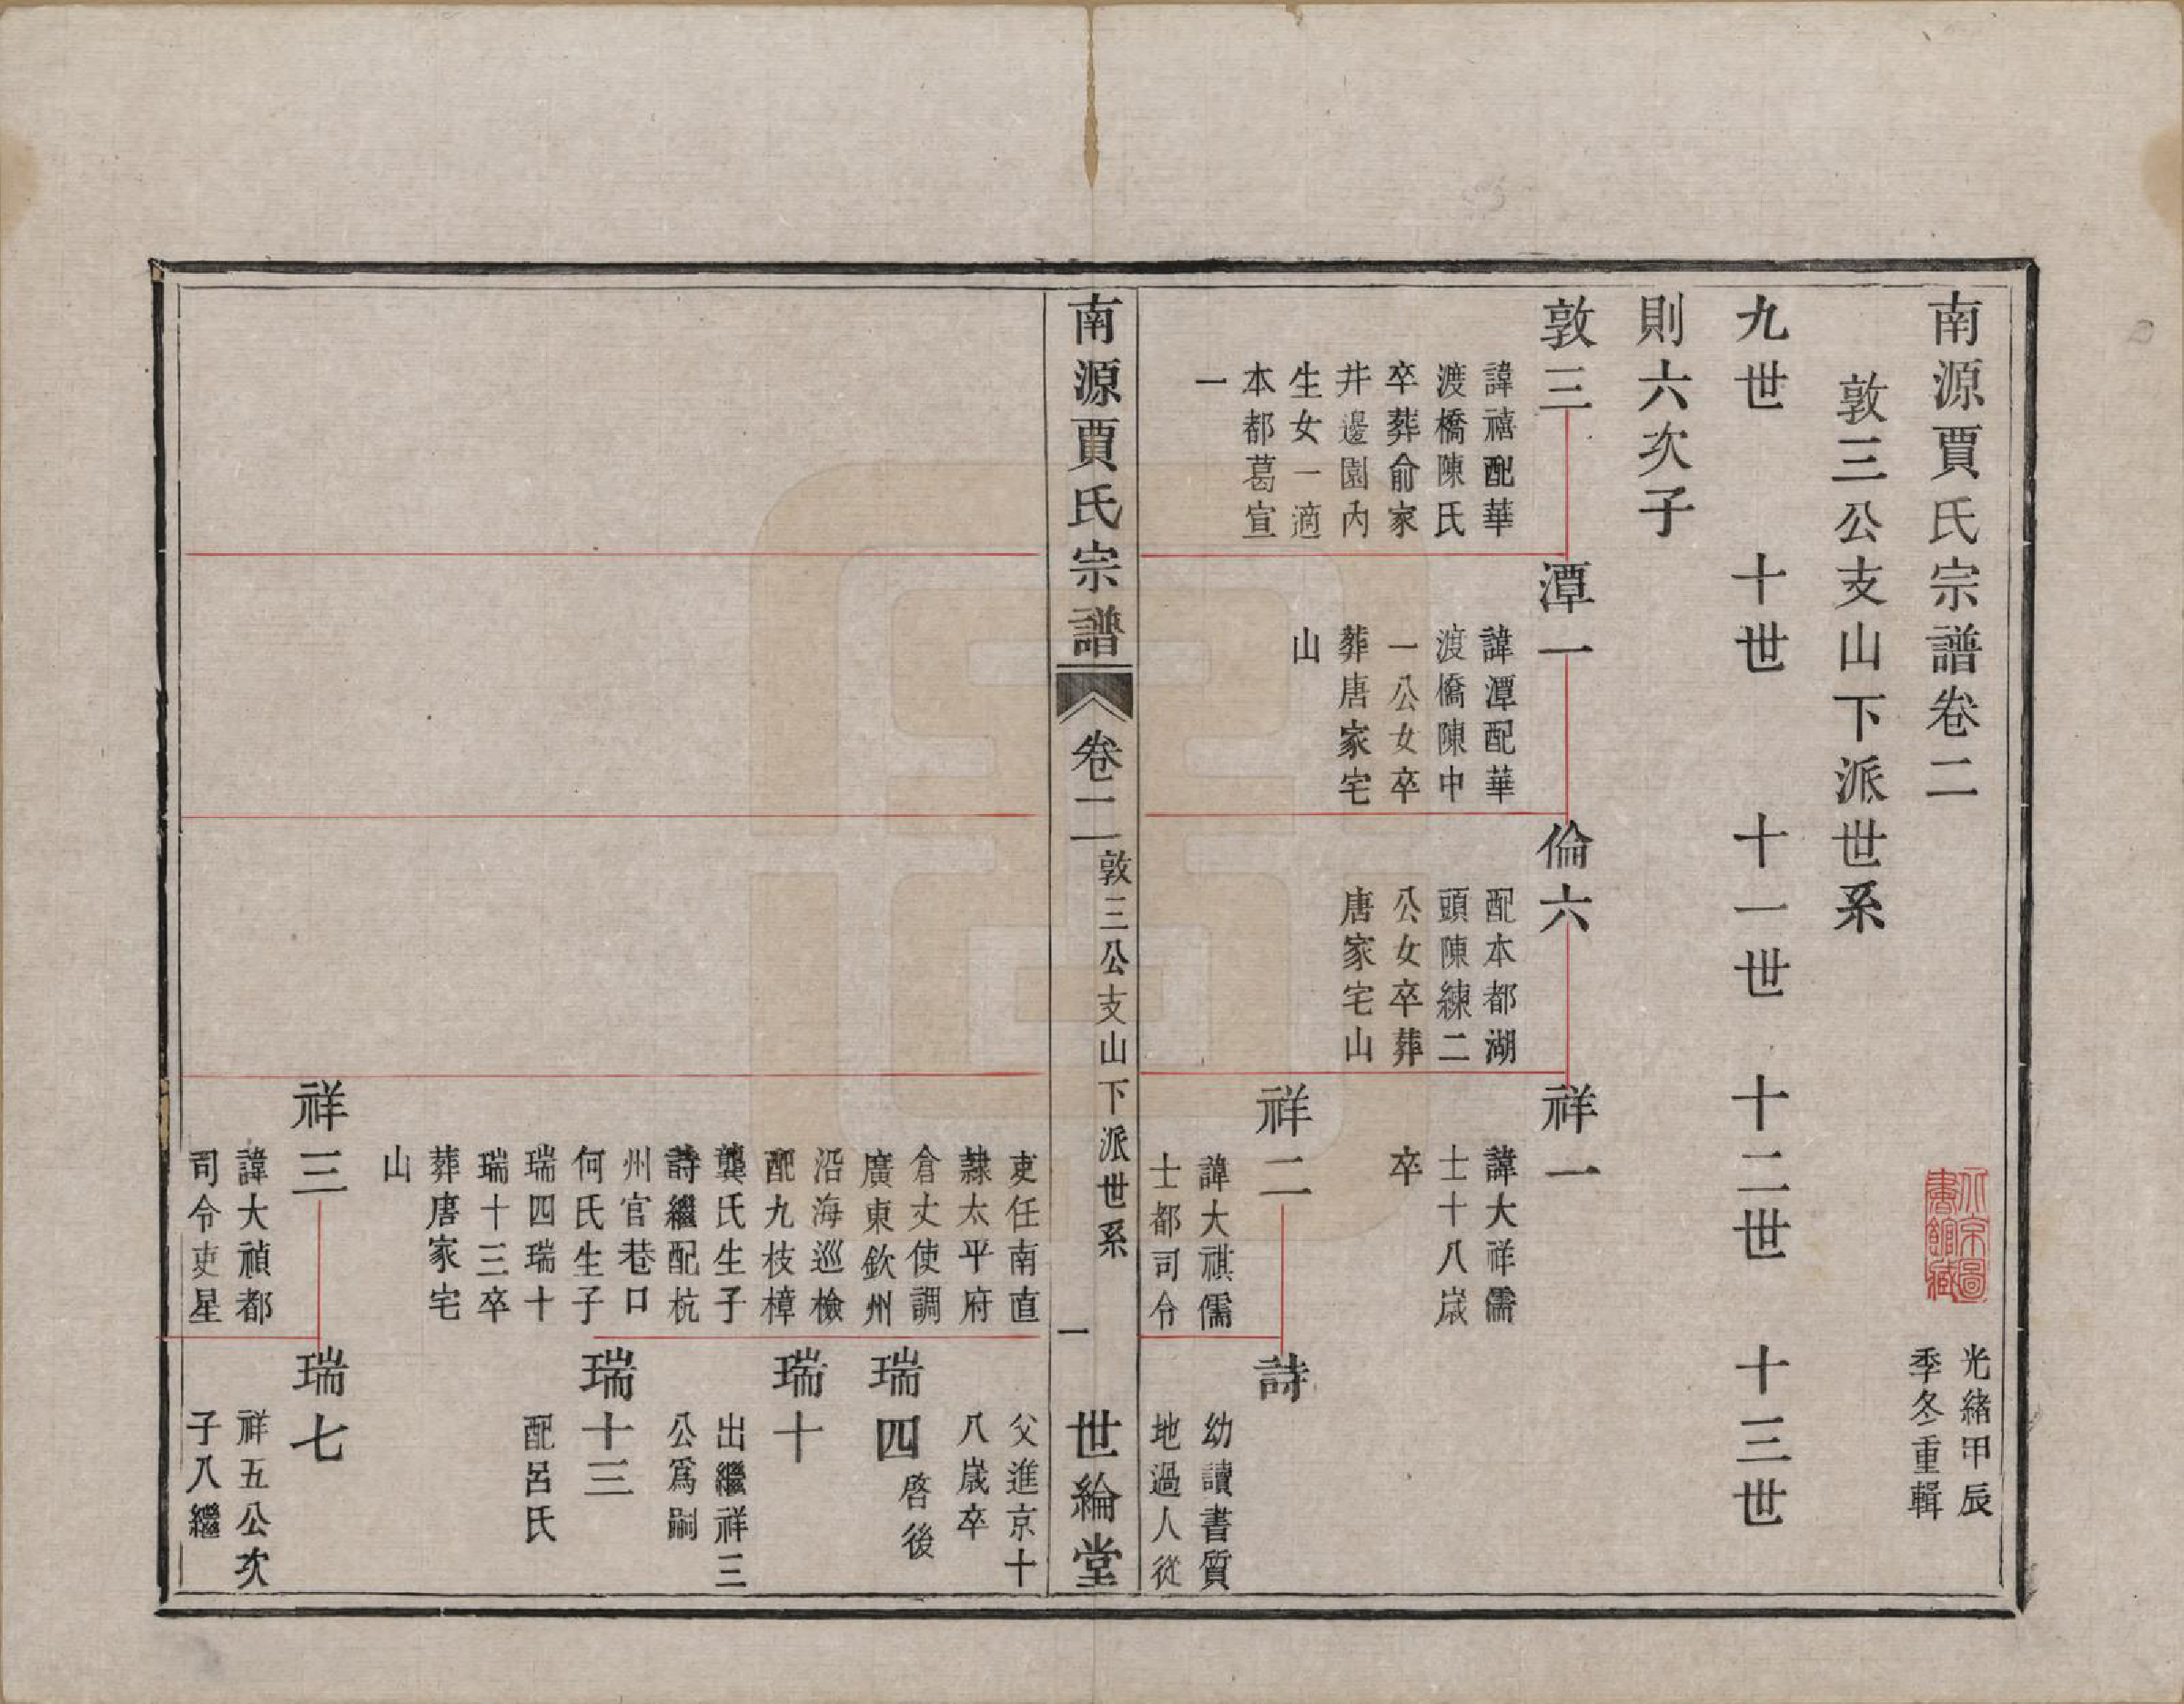 南源賈氏宗譜卷二
光緒甲辰
季冬重輯
敦三公支山下派世系
九世
十世
十一世
十二世
十三世
則六次子
敦三
諱禧配華
渡橋陳氏
卒葬俞家
井邊園內
生女一適
本都葛宣
一
潭一
諱潭配華
渡橋陳中
一公女卒
葬唐家宅
山
倫六
配本都湖
頭陳練二
公女卒葬
唐家宅山
祥一
諱大祥儒
士十八歲
卒
祥二
諱大祺儒
士都司令
詩
幼讀書質
地過人從
南源賈氏宗譜
卷二
敦三公支山下派世系
一
世綸堂
吏任南直
隸太平府
倉丈使調
廣東欽州
沿海巡檢
配九枝樟
龔氏生子
詩繼配杭
州官巷口
何氏生子
瑞四瑞十
瑞十三卒
葬唐家宅
山
父進京十
八歲卒
瑞四
啓後
瑞十
出繼祥三
公爲嗣
瑞十三
配呂氏
祥三
諱大禎都
司令吏星
瑞七
祥五公次
子八繼